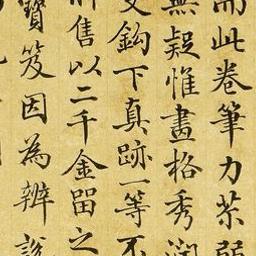 而此卷筆力苶弱
無疑惟畫格秀潤
鈎下真跡一等不
售以二千金留之
寶笈因為辨說